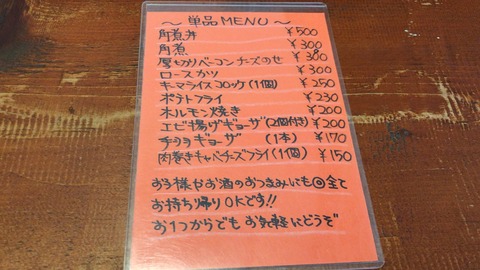 ～単品MENU～
角煮丼 ¥500
角煮 ¥300
厚切りベーコンチーズのせ ¥300
ロースカツ ¥300
キーマライスコロッケ(1個) ¥250
ポテトフライ ¥230
ホルモン焼き ¥200
エビ揚げギョーザ(2個付き) ¥200
チョコギョーザ (1本) ¥170
肉巻きキャベチーズフライ(1個) ¥150
お子様やお酒のおつまみにも◎全て
お持ち帰りOKです!!
お1つからでもお気軽にどうぞ